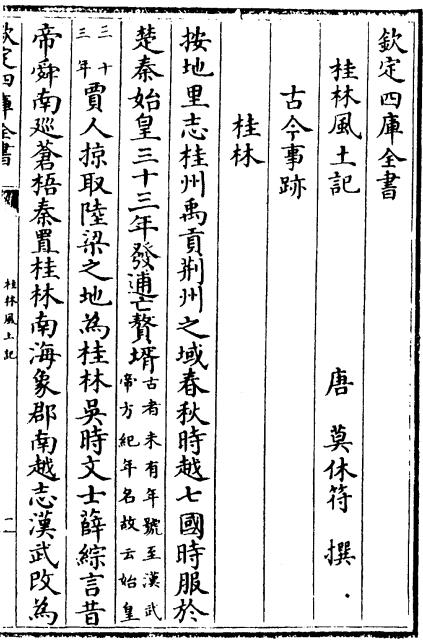 欽定四庫全書
桂林風土記
唐 莫休符 撰
古今事跡
桂林
按地里志桂州禹貢荆州之域春秋時越七國時服於
楚秦始皇三十三年發逋亡贅壻古者未有年號至漢武帝方紀年名故云始皇
三十三年賈人掠取陸梁之地為桂林吳時文士薛綜言昔
帝舜南廵蒼梧秦置桂林南海象郡南越志漢武改為
欽定四庫全書
桂林風土記
二